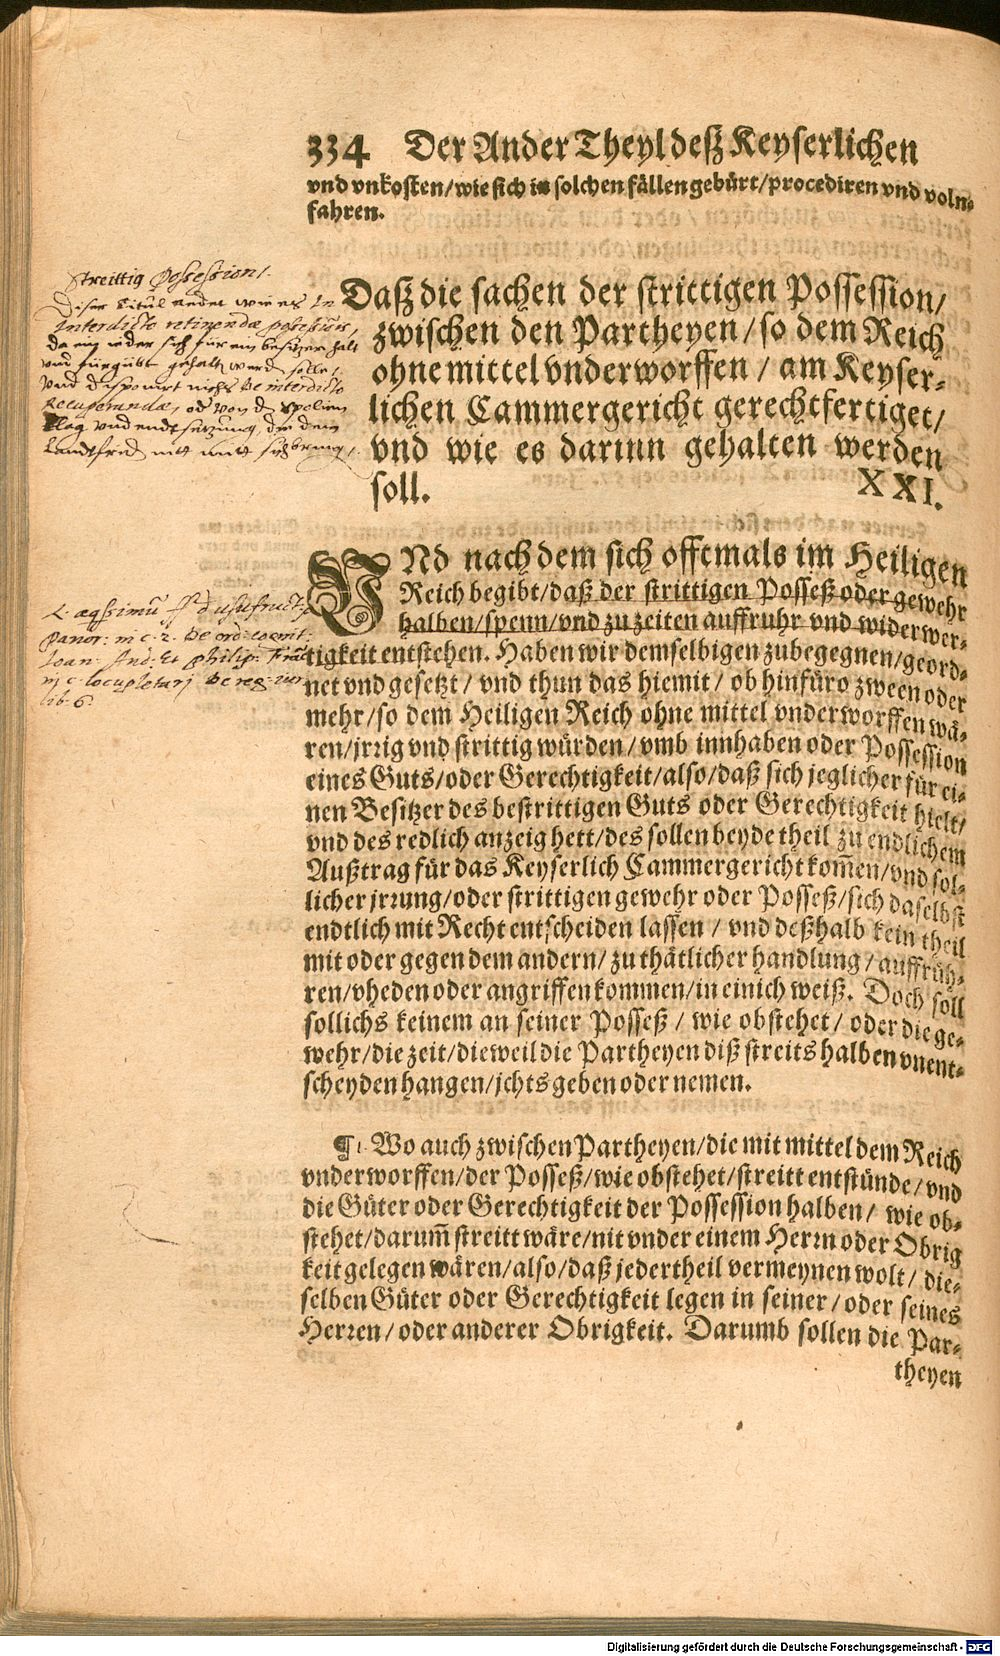 334 Der Ander Theyl deß Keyserlichen
vnd vnkosten/wie sich in solchen fällen gebürt/procediren vnd voln-
fahren.
Streittig Possession/.
Diser Titul redet wie es In
Interdicto retinendæ possessionis,
da ein ieder sich für ein besitzer halt
vnd fürgibt gehalten werden solle/
Vnd disponirt nichts De interdicto
Recuperandæ, oder von der Spolien
Klag vnd endtsetzung, die dem
Landtfrid
Daß die sachen der strittigen Possession/
zwischen den Partheyen/so dem Reich
ohne mittel vnderworffen/am Keyser-
lichen Cammergericht gerechtfertiget/
vnd wie es darinn gehalten werden
soll. XXI.
VNd nach dem sich offtmals im Heiligen
Reich begibt/daß der strittigen Posseß oder gewehr
halben/spenn/vnd zu zeiten auffruhr vnd widerwer-
tigkeit entstehen. Haben wir demselbigen zubegegnen/geord-
net vnd gesetzt/vnd thun das hiemit/ob hinfüro zween oder
mehr/so dem Heiligen Reich ohne mittel vnderworffen wä-
ren/jrrig vnd strittig würden/vmb innhaben oder Possession
eines Guts/oder Gerechtigkeit/also/daß sich jeglicher für ei-
nen Besitzer des bestrittigen Guts oder Gerechtigkeit hielt/
vnd des redlich anzeig hett/des sollen beyde theil zu endlichem
Außtrag für das Keyserlich Cammergericht kom̃en/vnd sol-
licher jrrung/oder strittigen gewehr oder Posseß/sich daselbst
endtlich mit Recht entscheiden lassen/vnd deßhalb kein theil
mit oder gegen dem andern/zu thätlicher handlung/auffrüh-
ren/vheden oder angriffen kommen/in einich weiß. Doch soll
sollichs keinem an seiner Posseß/wie obstehet/oder die ge-
wehr/die zeit/dieweil die Partheyen diß streits halben vnent-
scheyden hangen/ichts geben oder nemen.
L. aequissimum ff de usufruct:
Panor: in c. 2. De ord: cognit:
Ioan: And: Et philip: Franc
in c. locupletari De reg: iur
lib. 6.
¶ Wo auch zwischen Partheyen/die mit mittel dem Reich
vnderworffen/der Posseß/wie obstehet/streitt entstünde/vnd
die Güter oder Gerechtigkeit der Possession halben/wie ob-
stehet/darum̃ streitt wäre/nit vnder einem Herrn oder Obrig
keit gelegen wären/also/daß jedertheil vermeynen wolt/die-
selben Güter oder Gerechtigkeit legen in seiner/oder seines
Herren/oder anderer Obrigkeit. Darumb sollen die Par-
theyen
Digitalisierung gefördert durch die Deutsche Forschungsgemeinschaft - DFG